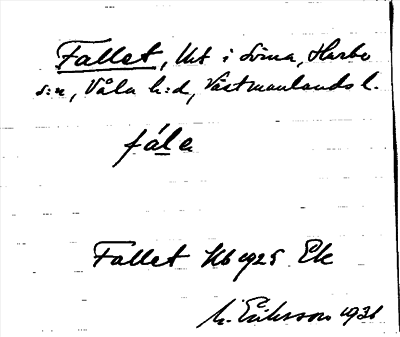 Fallet, Utt i Svina, Harbo
s:n, Våla h:d, Västmanlands l.
fále
Fallet Hb 1925 Ek
M. Eriksson 1931